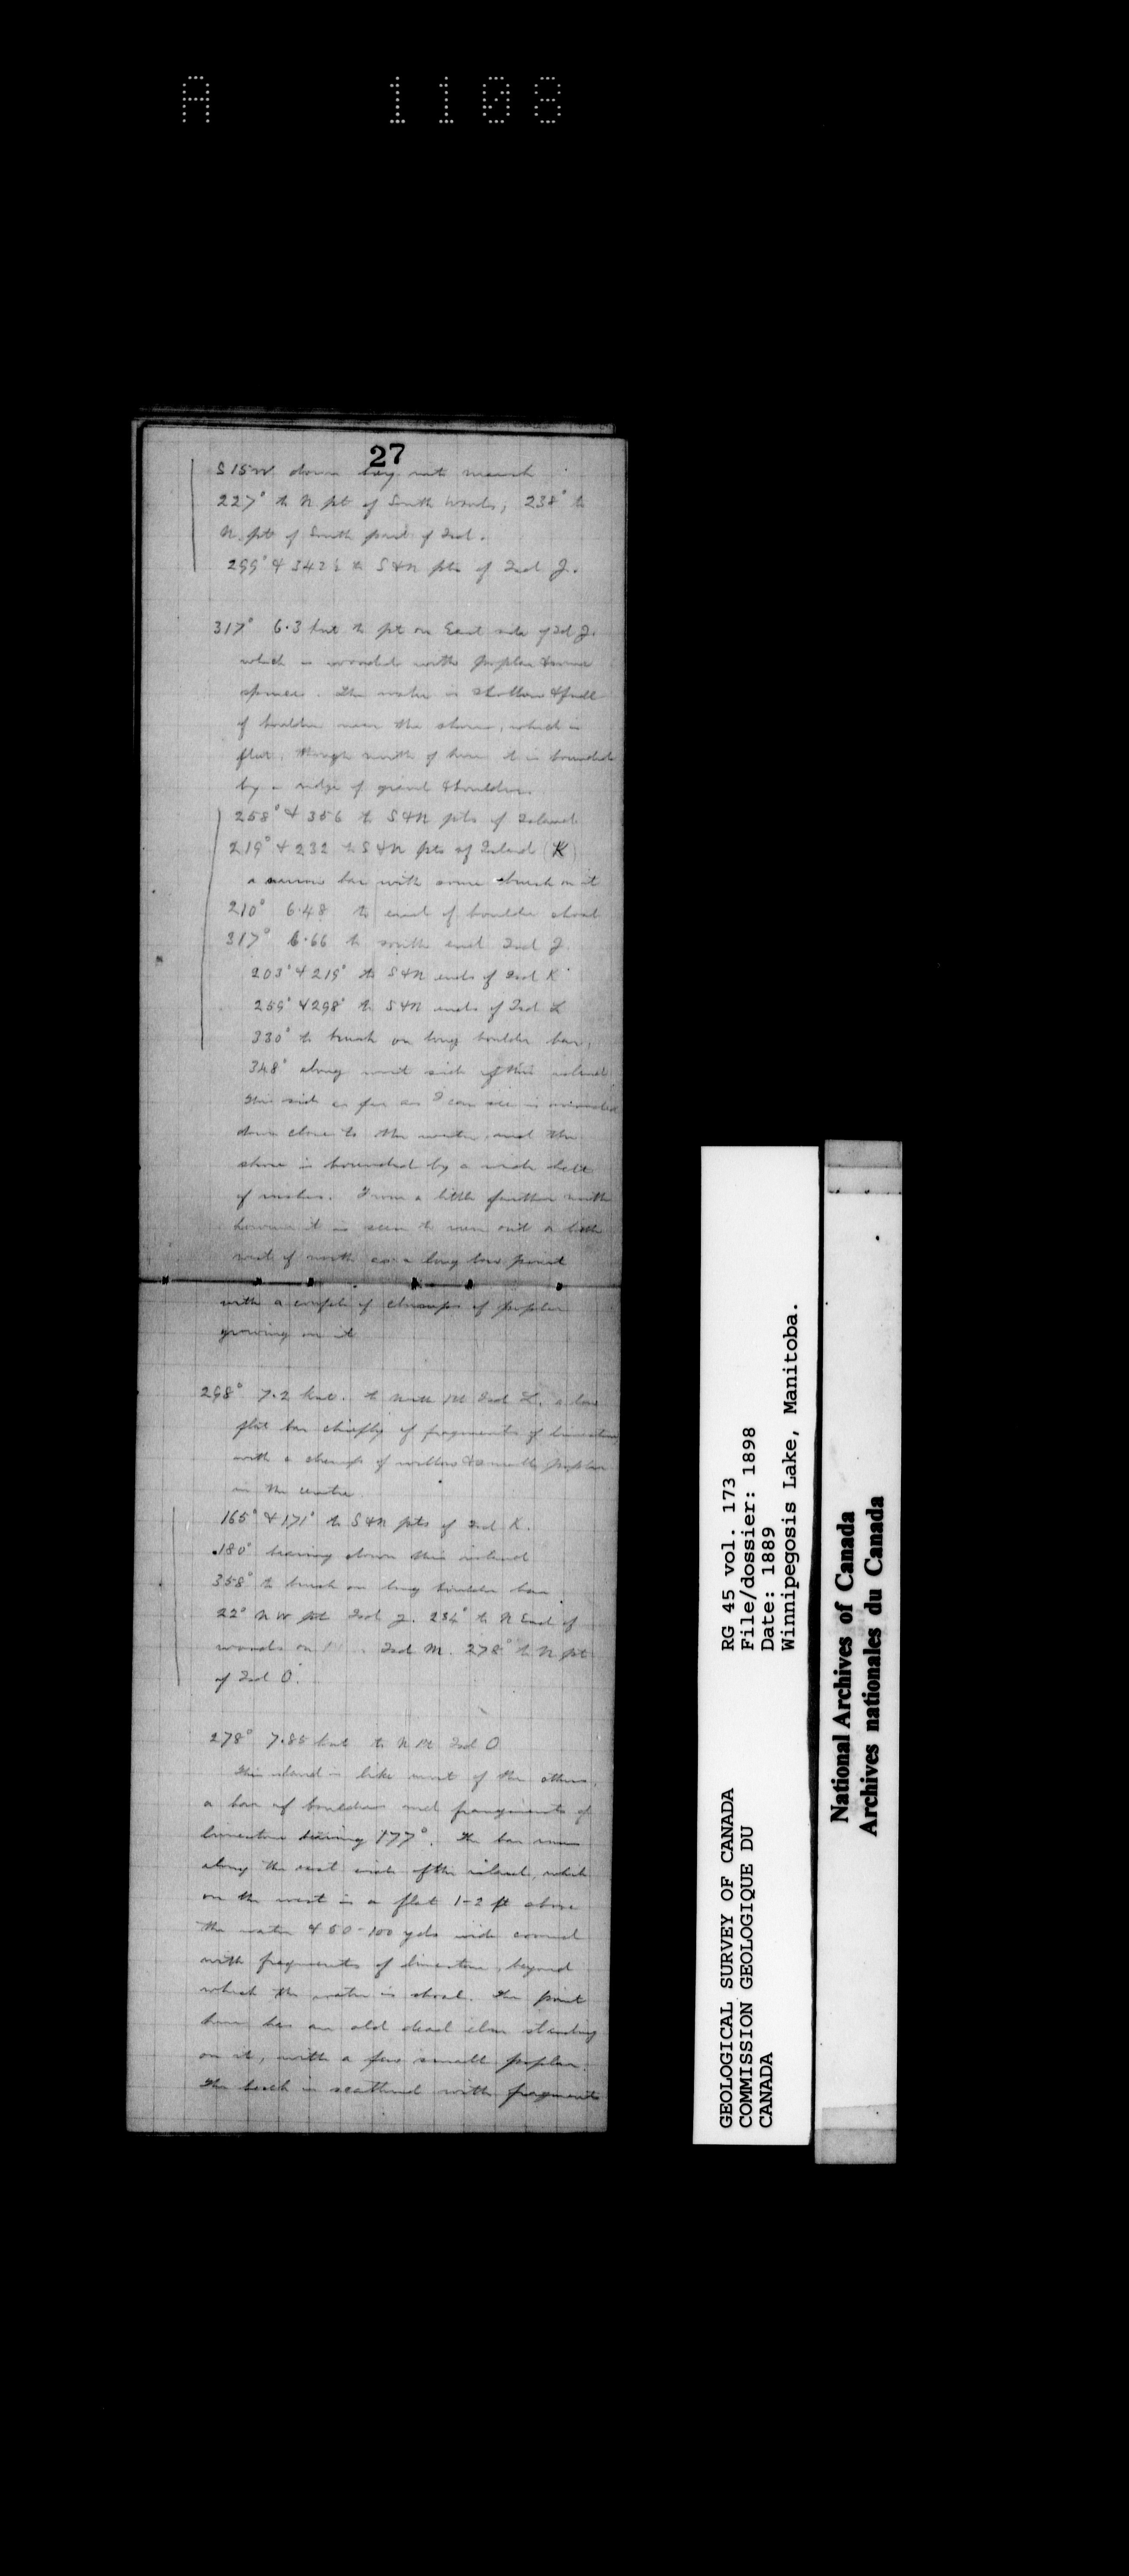 A 1108
27
S 15 W down bay into marsh
227° to N pt of South woods, 238° to
N. pt of South part of Isd.
299° & 342½ to S & N pts of Isd J.
317° 6.3 knt to pt on East side of Isd J.
which is wooded with poplar & some
spruce. The water is shallow & full
of boulders near the shore, which is
flat, though north of here it is bounded
by a ridge of gravel & boulders.
258° & 356 to S & N pts of Island
219° & 232 to S & N pts of Island (K)
a narrow bar with some brush on it
210° 6.48 to end of boulder shoal
317° 6.66 to south end Isd J.
203° & 219° to S & N ends of Isd K
259° & 298° to S & N ends of Isd L
330° to brush on long boulder bar,
348° along west side of this island
This side as far as I can see is wooded
down close to the water, and the
shore is bounded by a wide belt
of rushes. From a little further north
however it is seen to run out a little
west of north as a long low point
with a couple of clumps of poplar
growing on it
298° 7.2 knt. to North Pt Isd L. a low
flat bar chiefly of fragments of limestone
with a clump of willows & small poplar
in the centre.
165° & 171° to S & N pts of Isd K.
180° bearing down this island
358° to brush on long boulder bar
22° N W pt Isd J. 234° to N End of
woods on Isd M. 278° to N pt
of Isd O.
278° 7.85 knt to N Pt Isd O
This island is like most of the others,
a bar of boulders and fragments of
limestone bearing 177°. The bar runs
along the east side of the island, which
on the west is a flat 1-2 ft above
the water & 50-100 yds wide covered
with fragments of limestone, beyond
which the water is shoal. The point
here has an old dead elm standing
on it, with a few small poplar.
The beach is scattered with fragments
GEOLOGICAL SURVEY OF CANADA
COMMISSION GEOLOGIQUE DU
CANADA
RG 45 vol. 173
File/dossier: 1898
Date: 1889
Winnipegosis Lake, Manitoba.
National Archives of Canada
Archives nationales du Canada